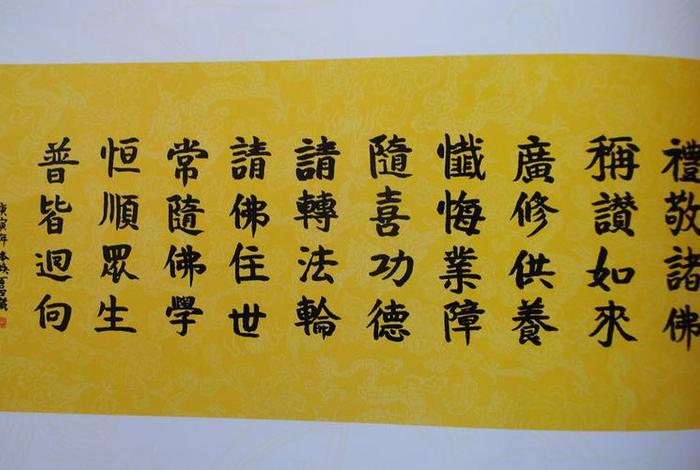 禮敬諸佛
稱讃如來
廣修供養
懺悔業障
隨喜功德
請轉法輪
請佛住世
常隨佛學
恒順眾生
普皆迴向
庚寅年